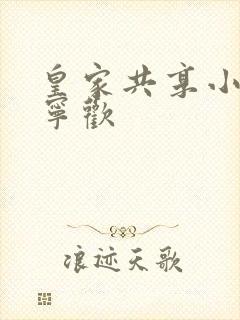 皇家共享小
寧歡
浪迹天歌